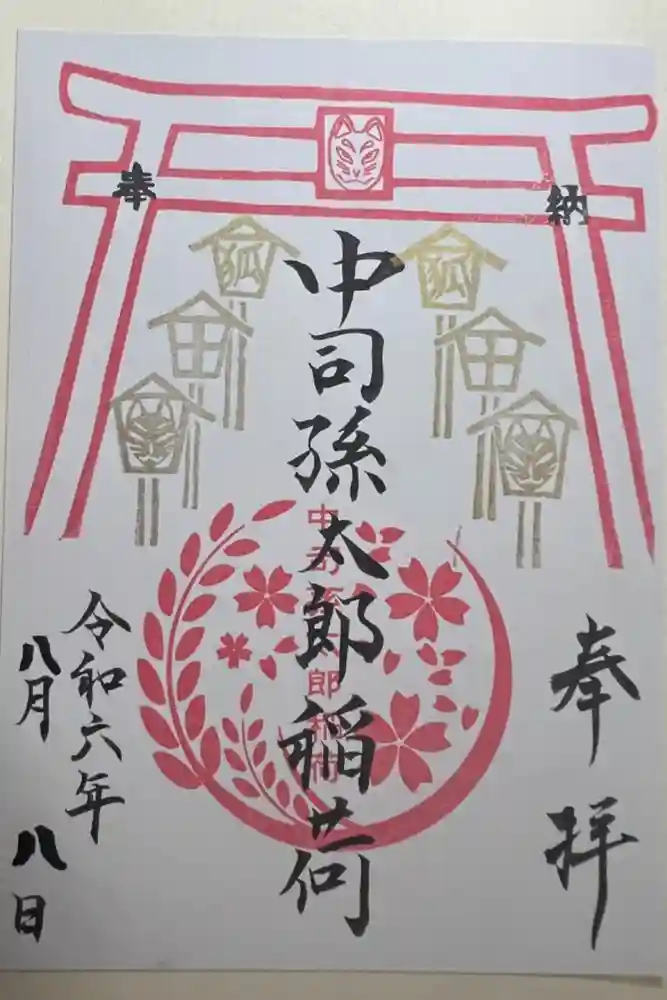 奉
納
狐
狐
田
田
奉拝
中司孫太郎稲荷
中司孫太郎稲荷
令和六年
八月八日